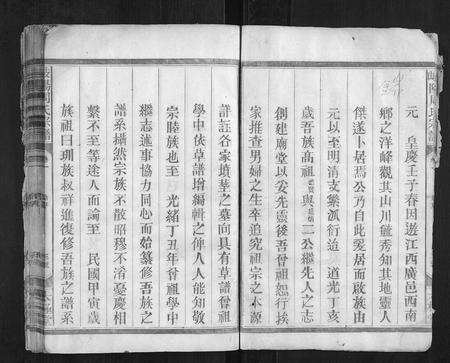 元　皇慶壬子春因遊江西廣邑西南
鄉之洋峰觀其山川毓秀知其地靈人
傑遂卜居焉公乃自此愛居而啟族由
元以至明清支繁派衍迨　道光丁亥
歲吾族高祖與二公繼先人之志
創建廟堂以妥先靈後吾曾祖恕行挨
家推查男婦之生卒追究祖宗之本源
詳註各家墳塋之墓向具有草譜曾祖
學中依草譜增編輯之俾人人能知敬
宗睦族也至　光緒丁丑年曾祖學中
繼志述事協力同心而始纂修吾族之
譜系據然宗族不散昭穆不淆憂慶相
繫不至等途人而論至　民國甲寅歲
族祖曰琍族叔祥進復修吾族之譜系